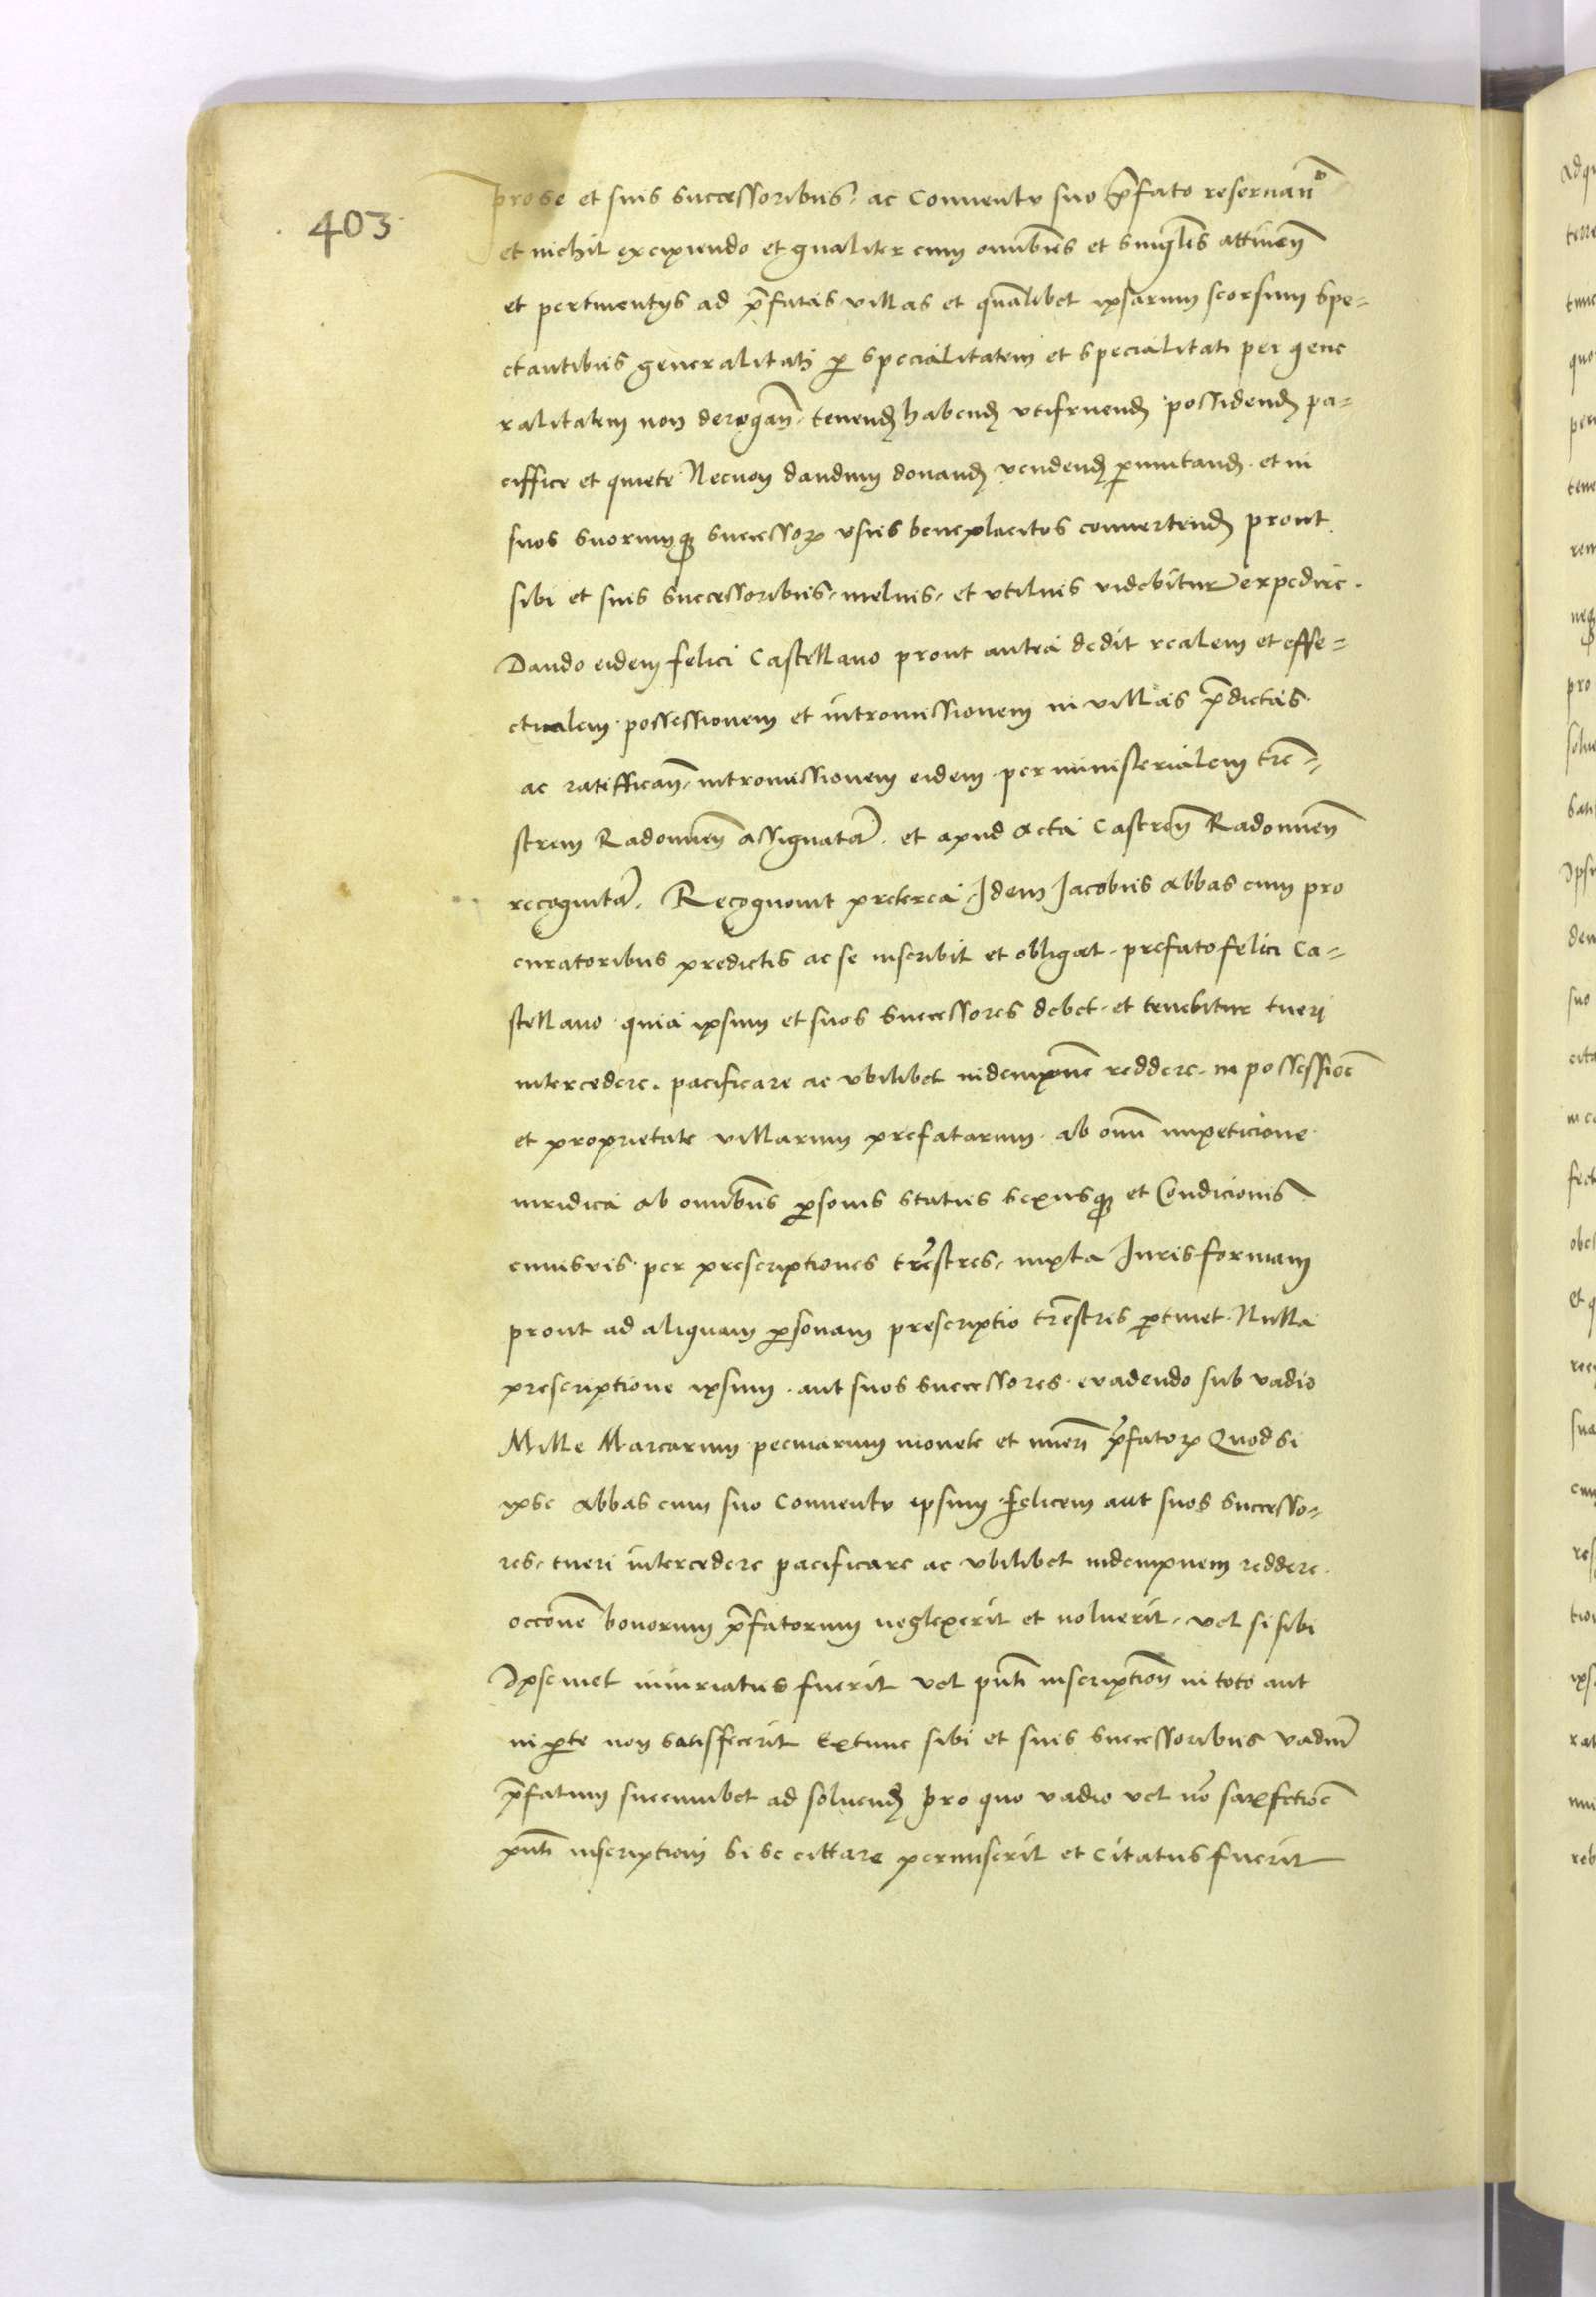 403
pro se et suis successoribus ac Conuentu suo p̄fato reseruan̄do
et nichil excipiendo et qualiter cum omībus et singl̄is attinen̄
et pertinentijs ad p̄fatas villas et quālibet ipsarum seorsum spe=
ctantibus generalitati ꝑ specialitatem et specialitati per gene
ralitatem non derogan̄. tenend̄ habend̄ vtifruend̄ possidend̄ pa=
ciffice et quiete Necnon dandum donand̄ vendend̄ ꝑmutand̄. et in
suos suorumqꝫ successoꝝ vsus beneplacitos conuertend̄ prout
sibi et suis successoribus, melius, et vtilius videbitur expedire.
Dando eidem felici Castellano prout antea dedit realem et effe=
ctualem possessionem et intromissionem in villas p̄dictas
ac ratiffican̄, intromissionem eidem per ministerialem tr̄e=
strem Radomien̄ assignatā. et apud acta Castren̄ Radomien̄
recognitā. Recognouit preterea Idem Jacobus abbas cum pro
curatoribus predictis ac se inscribit et obligat. prefato felici Ca=
stellano quia ipsum et suos successores debet. et tenebitur tueri
intercedere. pacificare ac vbilibet indempnē reddere. in possessioē
et proprietate villarum prefatarum. ab omī impeticione
iuridica ab omībus ꝑsonis status sexusqꝫ et Condicionis
cuiusvis per prescriptiones tr̄estres, iuxta Juris formam
prout ad aliquam ꝑsonam prescriptio tr̄estris ꝑtinet. Nulla
prescriptione ipsum. aut suos successores. euadendo sub vadio
Mille Marcarum pecuniarum monete et nūeri p̄fatoꝝ Quod si
ipse abbas cum suo Conuentu ipsum felicem aut suos successo=
res, tueri intercedere pacificare ac vbilibet indempnem reddere.
occōne bonorum p̄fatorum neglexerit et noluerit, vel si sibi
Ipsemet iniuriatus fuerit vel pn̄ti inscription̄ in toto aut
in ꝑte non satisffecerit Extunc sibi et suis successoribus vadiū
p̄fatum succumbet ad soluend̄ Pro quo vadio vel nō satisfctioē
pn̄ti inscriptioni si se cittare permiserit et citatus fuerit